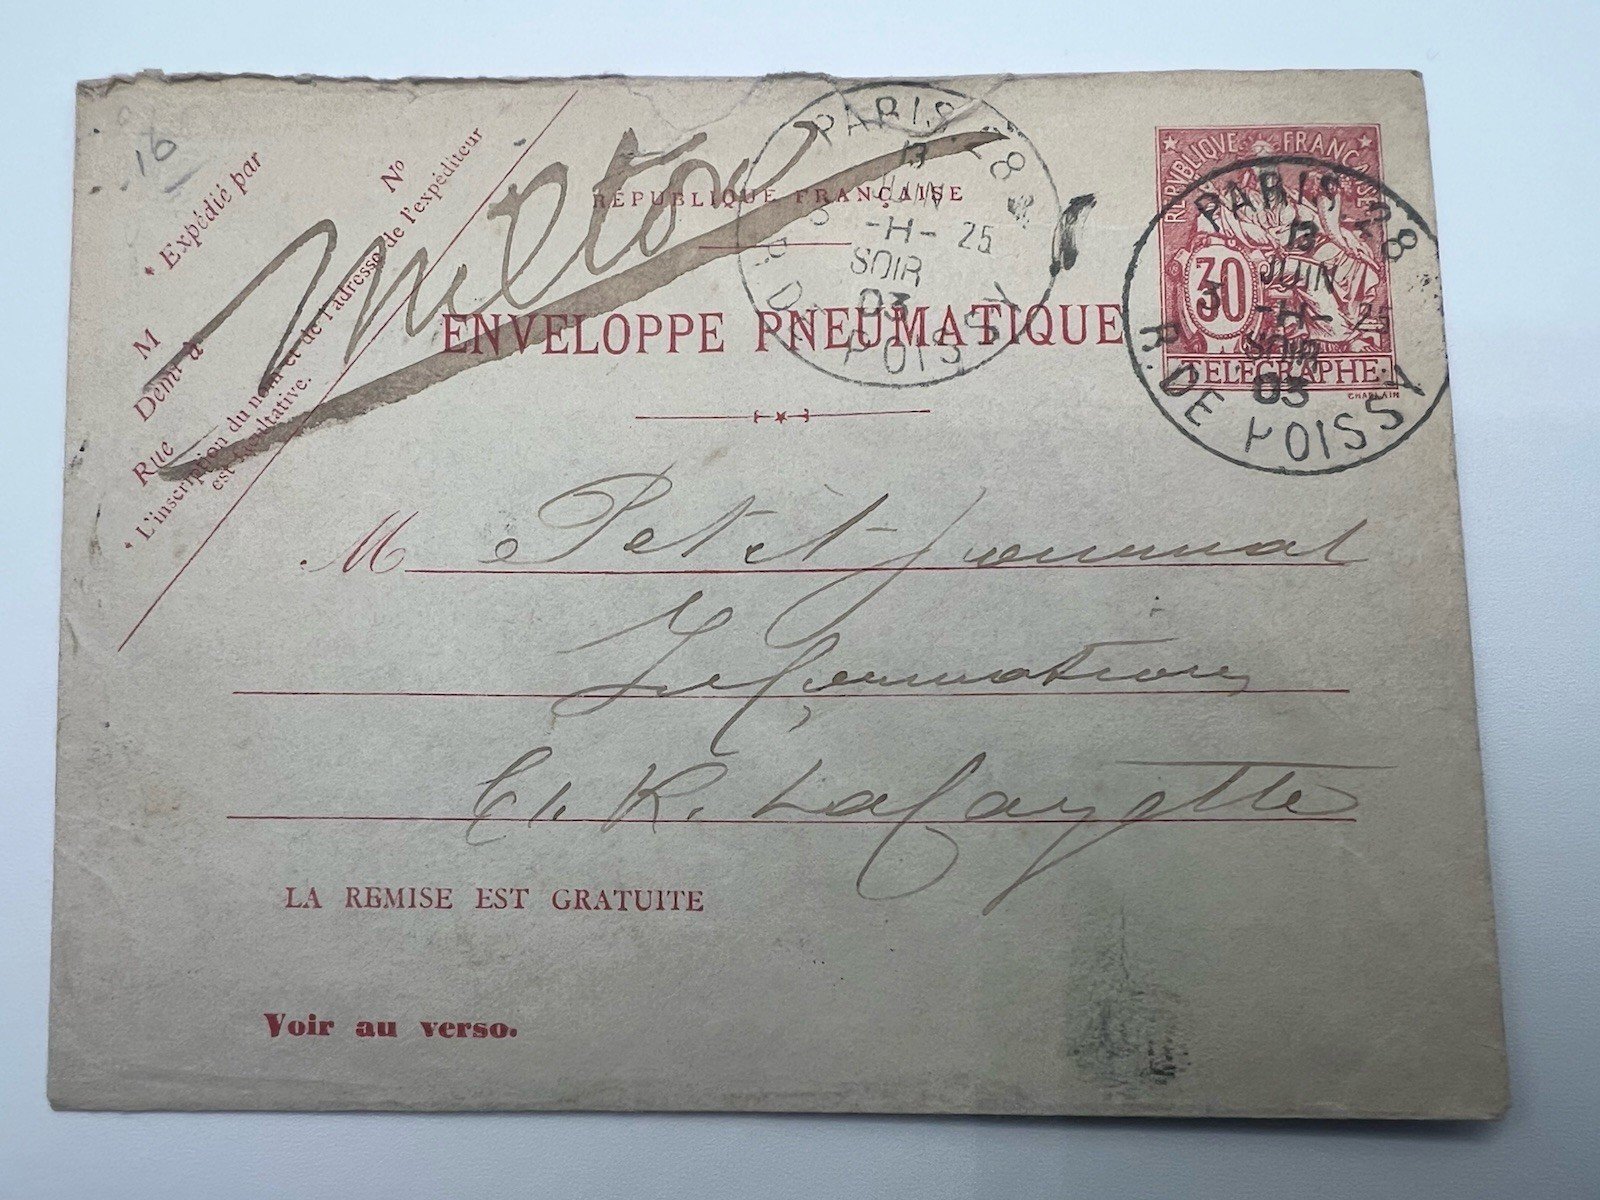 16
* Expédié par
M
Demt à
Rue
No
* L'inscription du nom et de l'adresse de l'expéditeur
est facultative.
RÉPUBLIQUE FRANÇAISE
ENVELOPPE PNEUMATIQUE
PARIS 28
13
JUIN
5 -H- 25
SOIR
03
R. DE POISSY
RÉPUBLIQUE FRANÇAISE
30
TÉLÉGRAPHE
CHAPLAIN
PARIS 28
13
JUIN
5 -H- 25
SOIR
03
R. DE POISSY
M Petit Journal
Informations
61. R. Lafayette
LA REMISE EST GRATUITE
Voir au verso.